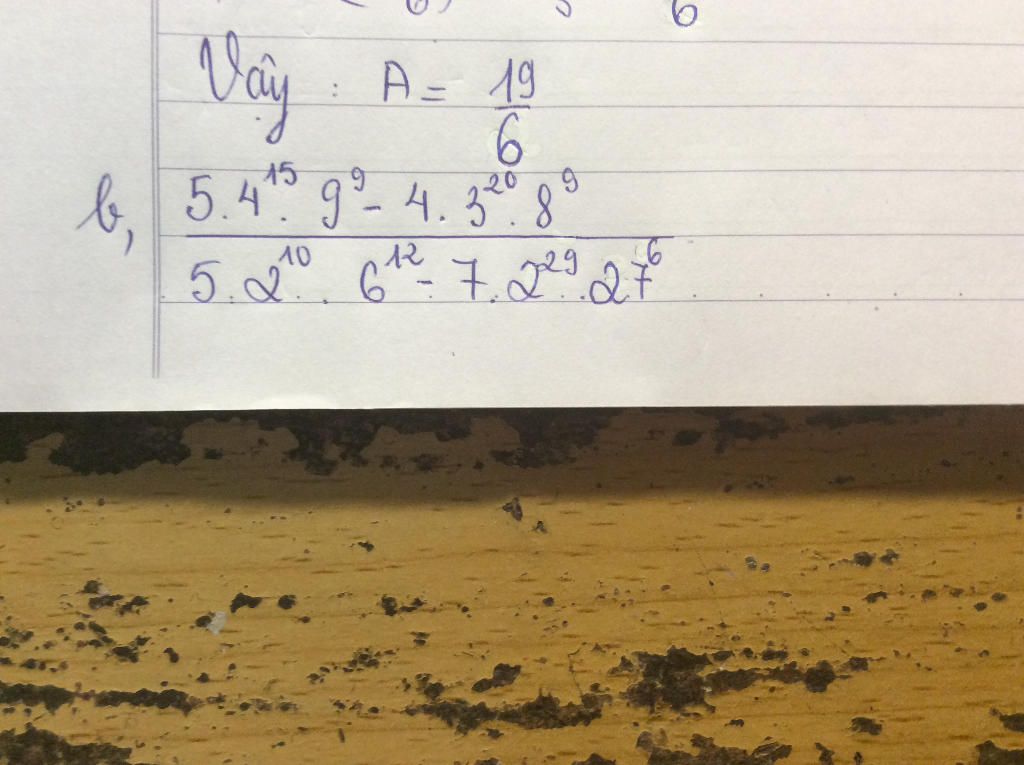 6) 3 6
Vậy : A = 19/6
b, (5.4^15. 9^9 - 4.3^20.8^9)/(5.2^10. 6^12 - 7.2^29.27^6)